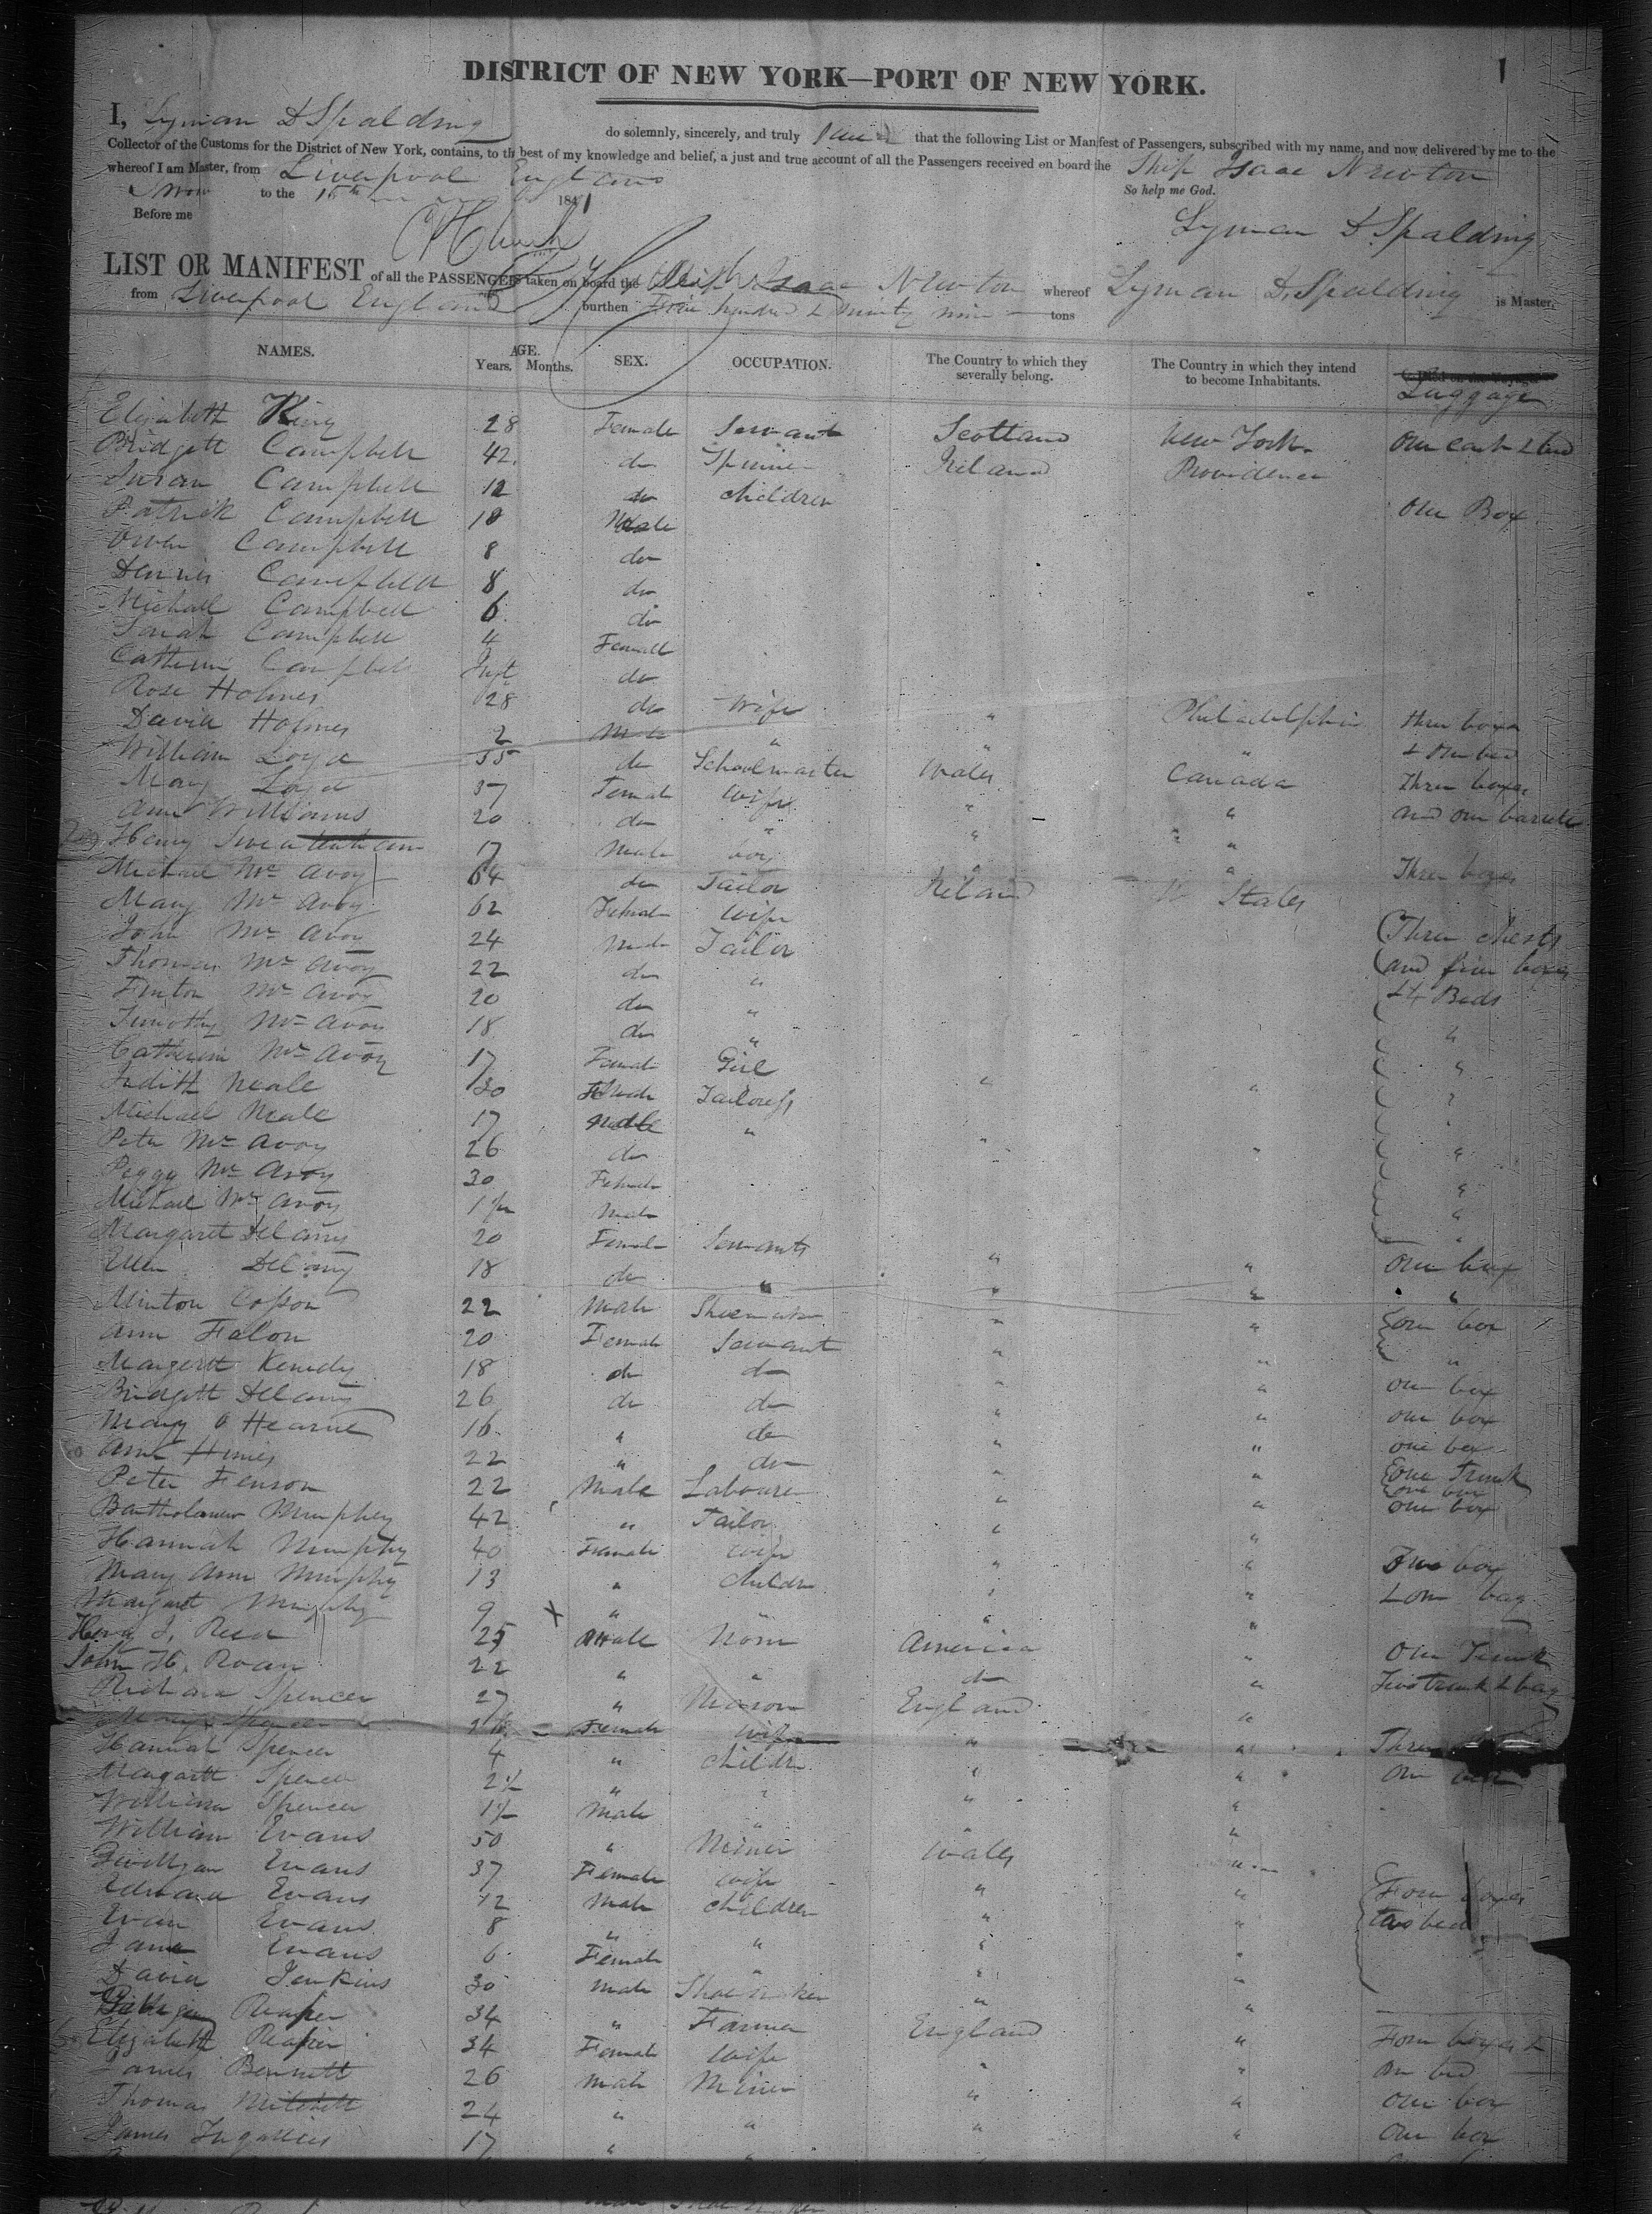 1
DISTRICT OF NEW YORK—PORT OF NEW YORK.
I, Lyman D Spalding do solemnly, sincerely, and truly that the following List or Manifest of Passengers, subscribed with my name, and now delivered by me to the
Collector of the Customs for the District of New York, contains, to the best of my knowledge and belief, a just and true account of all the Passengers received on board the Ship Isaac Newton
whereof I am Master, from Liverpool England
So help me God.
to the 15th 1841
Before me
Lyman D Spalding
LIST OR MANIFEST of all the PASSENGERS taken on board the Ship Isaac Newton whereof Lyman D. Spalding is Master,
from Liverpool England burthen hundred & ninety nine tons
NAMES. AGE. Years. Months. SEX. OCCUPATION. The Country to which they severally belong. The Country in which they intend to become Inhabitants. Luggage
Elizabeth King 28 Female Servant Scotland New York
Bridgett Campbell 42 do Ireland Providence
Susan Campbell 12 do children
Patrick Campbell 10 Male One Box
Owen Campbell 8 do
Dennis Campbell 8 do
Michael Campbell 6 do
Sarah Campbell 4 Female
Catherine Campbell Inft do
Rose Holmes 28 do Wife " Philadelphia three boxes
David Holmes 2 Male " " " & one bed
William Loyd 55 do Schoolmaster Wales Canada Three boxes
Mary Loyd 37 Female wife " " and one barrele
Ann Williams 20 do " " "
Henry 17 Male boy " " Three boxes
Michael Mc Avoy 64 do Tailor Ireland States
Mary Mc Avoy 62 Female wife
John Mc Avoy 24 Male Tailor Three chests
Thomas Mc Avoy 22 do " and five boxes
Finton Mc Avoy 20 do " & 4 Beds
Timothy Mc Avoy 18 do " "
Catherine Mc Avoy 17 Female Girl "
Judith Neale 30 Female Tailoress " "
Michael Neale 17 Male "
Peter Mc Avoy 26 do " " "
Peggy Mc Avoy 30 Female "
Michael Mc Avoy Male "
Margaret Delany 20 Female Servants " " One box
Ellen Delany 18 do " " " "
Minton 22 Male Shoemaker " " one box
Ann Falon 20 Female Servant " " "
Margerett Kenedy 18 do do " " one box
Bridgett Delany 26 do do " " one box
Mary O Hearne 16 " do " " one box
Ann Hines 22 " do " " one Trunk one box
Peter Fenson 22 Male Labourer " " one box
Bartholomew Murphey 42 " Tailor " "
Hannah Murphy 40 Female wife " " Two box
Mary Ann Murphy 13 " Childre " " & one bag
Margaret Murphy 9 X " " " "
Reed 25 Male None America " One Trunk
John H. Roan 22 " " do " Two trunk & bag
Richard Spencer 27 " Mason England "
Mary Spencer Female wife " " Three
Hannah Spencer 4 " childre " " One
Margarett Spencer 2½ " " " "
William Spencer 1½ Male " " "
William Evans 50 " Miner Wales "
Evans 37 Female wife " " Four boxes
Edward Evans 12 Male children " " two bed
Evan Evans 8 " " " "
Jane Evans 6 Female " " "
David Jenkins 30 Male Shoemaker " "
Reaper 34 " Farmer England " Four boxes &
Elizabeth Reaper 34 Female wife " " One bed
James Bennett 26 Male Miner " " One box
Thomas Mitchell 24 " " " " One box
James 17 " "